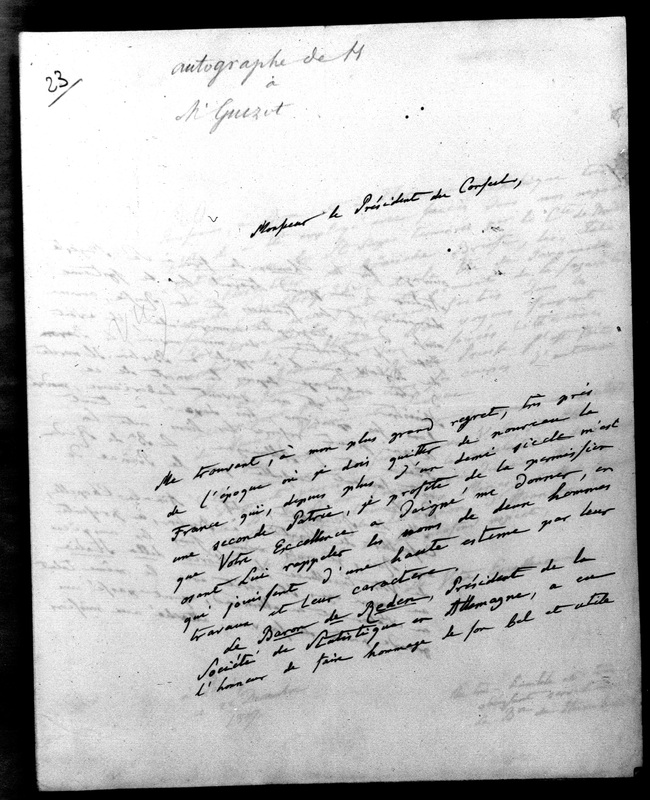 23
autographe de H
à
Mr Guizot
Monsieur le Président du Conseil,
Me trouvant, à mon plus grand regret, très près
de l'époque où je dois quitter de nouveau la
France qui, depuis plus d'un demi siècle m'est
une seconde Patrie, je profite de la permission
que Votre Excellence a daigné me donner, en
osant Lui rappeler les noms de deux hommes
qui jouissent d'une haute estime par leur
travaux et leur caractere.
Le Baron de Reden, Président de la
Société de Statistique en Allemagne, a eu
l'honneur de faire hommage de son bel et utile